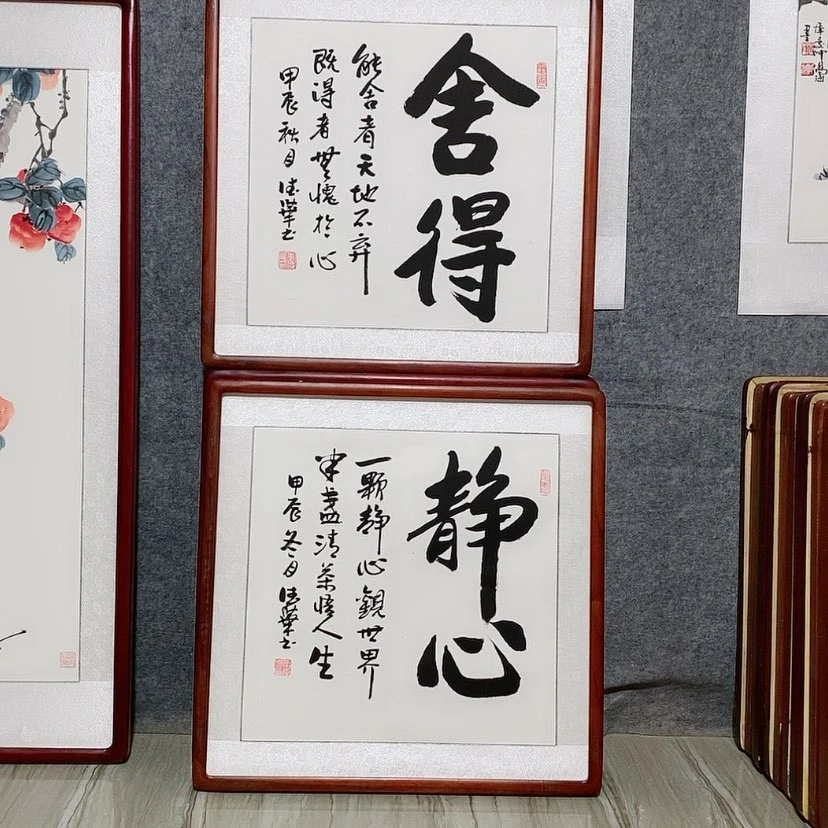 舍得
能舍者天地不弃
既得者無愧於心
甲辰秋月
静心
一颗静心觀世界
半盏清茶悟人生
甲辰冬月